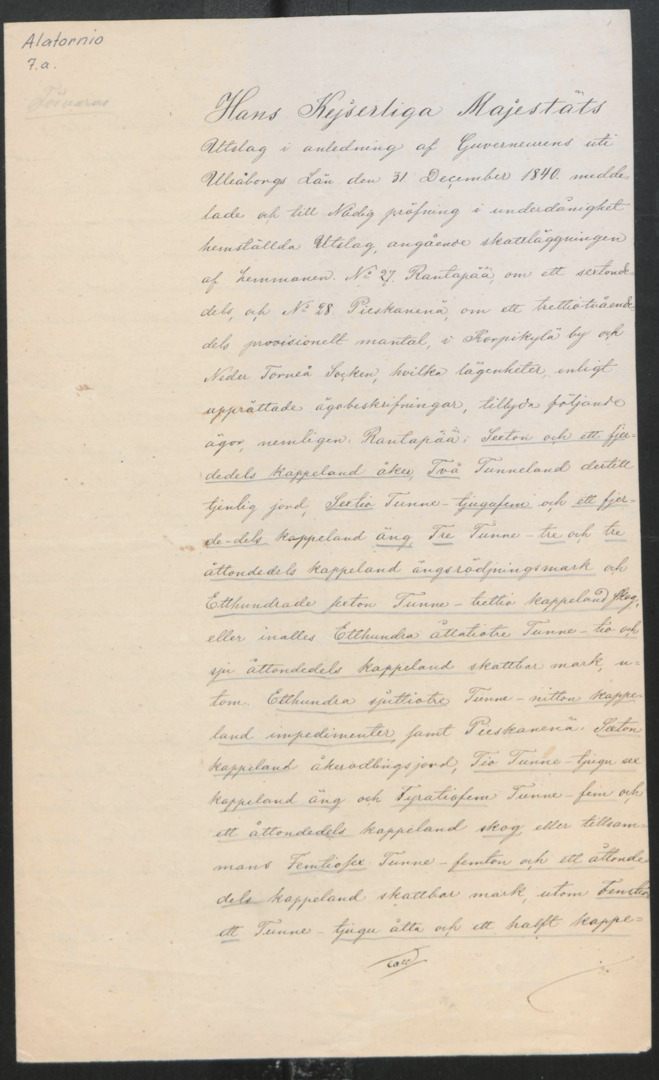 Alatornio
7.a.
Förvaras
Hans Kejserliga Majestäts
Utslag i anledning af Guverneurens uti
Uleåborgs Län den 31 December 1840. medde
lade och till Nådig pröfning i underdånighet
hemställda Utslag, angående skattläggningen
af hemmanen. No 27. Rantapää, om ett sextonde-
dels, och No 28 Pieskanenä, om ett trettiotvåen-
dels provisionelt mantal, i Korpikylä by och
Neder Torneå Socken, hvilka lägenheter, enligt
upprättade ägobeskrifningar, tillyda följande
ägor, nemligen: Rantapää: Sexton och ett fjer-
dedels kappeland åker, Två Tunneland dertill
tjenlig jord, Sextio Tunne-tjugufem och ett fjer-
de-dels kappeland äng Tre Tunne-tre och tre
åttondedels kappeland ängsrödjningsmark och
Etthundrade sexton Tunne-trettio kappeland skog,
eller inalles Etthundra åttatiotre Tunne-tio och
sju åttondedels kappeland skattbar mark, u-
tom Etthundra sjuttiotre Tunne-nitton kappe-
land impedimenter, samt Pieskanenä: Sexton
kappeland åkerodlingsjord, Tio Tunne-tjugu sex
kappeland äng och Fyratiofem Tunne-fem och
ett åttondedels kappeland skog eller tillsam-
mans Femtiosex Tunne-femton och ett åttonde
dels kappeland skattbar mark, utom Femtio
ett Tunne-tjugu åtta och ett halft kappe-
land